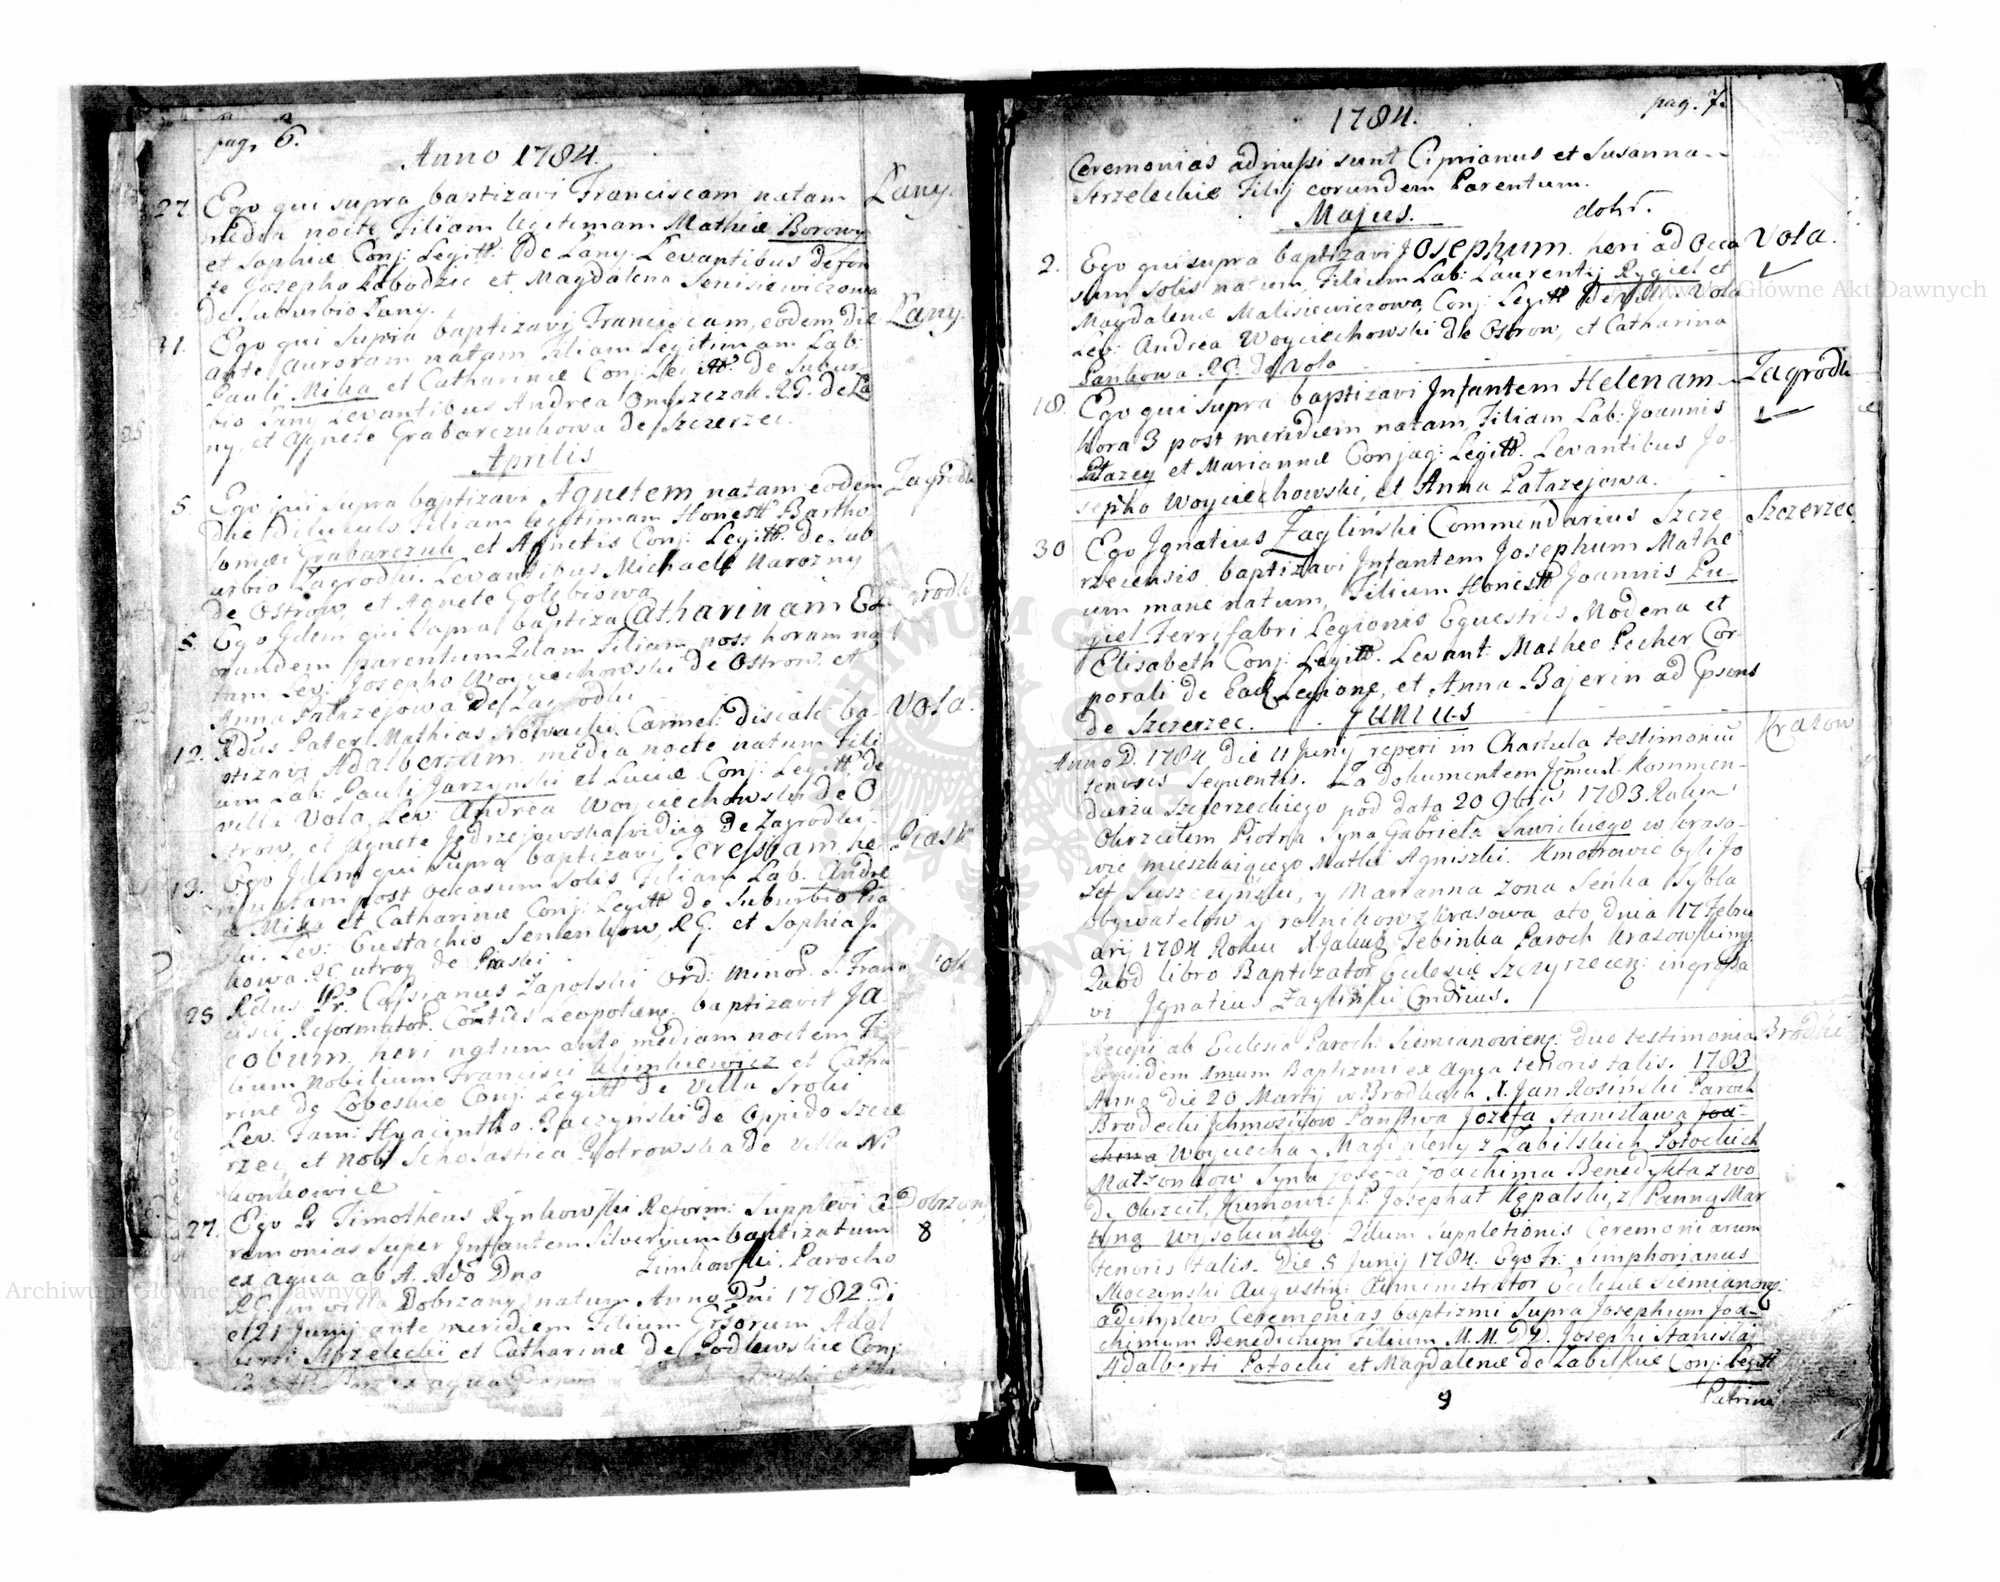 pag. 6.
Anno 1784.
27. Ego qui supra baptizavi Franciscam natam Łany.
media nocte Filiam legitimam Mathiæ Borowy
et Sophiæ Conj: Legitt: de Łany. Levantibus de fon
te Josepho Łabodzic et Magdalena Senisiewiczowa
de Suburbio Łany.
31. Ego qui supra baptizavi Franciscam, eodem die Łany.
ante auroram natam Filiam Legitimam Lab:
Pauli Mika et Catharinæ Conj: Legitt: de Subur
bio Łany Levantibus Andrea Onyszczak R.G. de Ła
ny, et Agnete Grabarczukowa de Szczerzec.
Aprilis
5. Ego qui supra baptizavi Agnetem natam eodem Zagrodk
die diluculo Filiam legitimam Honestt Bartho
lomei Grabarczuk et Agnetis Conj: Legitt: de Sub
urbio Zagrodki. Levantibus Michaele Narozny
de Ostrow, et Agnete Gołębiowa
5. Ego Idem qui supra baptiza Catharinam Eo
rundem parentum 2dam Filiam post horam na
tam, Lev: Josepho Woyciechowski de Ostrow et
Anna Pałazejowa de Zagrodki
12. Rdus Pater Mathias Nowacki Carmel: discalc: ba- Vola.
ptizavi Adalbertum media nocte natum Fili
um Lab: Pauli Jarzynski et Luciæ Conj: Legitt: de
villa Vola, Lev: Andrea Woyciechowski de O
strow, et Agnete Jędrzejowska vidua de Zagrodki.
13. Ego Idem qui supra baptizavi Teressiam he Piask
ri natam post occasum Solis Filiam Lab: Andre
æ Mika et Catharinæ Conj: Legitt de Suburbio Pia
ski. Lev: Eustachio Senenkow, R.G. et Sophia J.
kowa. R.G. utroq de Piaski.
25 Rdus Pr. Cassianus Zapolski Ord: Minor. S. Fran
cisci Reformator. Contus Leopolien: baptizavit Ja
cobum heri natum ante mediam noctem Fi
lium Nobilium Francisci Klimkiewicz et Catha
rinæ de Łobeskie Conj: Legitt de Villa Sroki
Lev: Fam: Hyacintho Baczynski de Oppido Szcze
rzec, et Nob: Scholastica Piotrowska de Villa Ni
konkowice
27. Ego Pr Timotheus Rynkowski Reform: Supplevi Ce Dobrzany
remonias super Infantem Silverium baptizatum 8
ex aqua ab A. Rdo Dno Zimkowski. Parocho
R.G. in villa Dobrzany natum Anno Dni 1782 Di
e 21 Junij ante meridiem Filium Grsorum Adal
berti Strzelecki et Catharinæ de Podlewskie Conj:
pag. 7.
1784.
Ceremonias admissi sunt Ciprianus et Susanna
Strzeleckie Filij eorundem Parentum.
Majus. dokr.
2. Ego qui supra baptizavi Josephum heri ad Occa Vola.
sum Solis natum, Filium Lab: Laurentij Rygiel et
Magdalenæ Malisiewiczowa, Conj: Legitt De Villa Vola
Lev: Andrea Woyciechowski de Ostrow, et Catharina
Pankowa R.G. de Vola
18. Ego qui supra baptizavi Infantem Helenam Zagrodki
hora 3 post meridiem natam, Filiam Lab: Joannis
Pałazey et Mariannæ Conjug: Legitt. Levantibus Jo
sepho Woyciechowski, et Anna Pałazejowa.
30 Ego Ignatius Zagliński Commendarius Szcze Szczerzec.
rzecensis baptizavi Infantem Josephum Mathe
um mane natum, Filium Honestt Joannis Pu-
giel Ferrifabri Legionis Equestris Modena et
Elisabeth Conj: Legitt. Levant: Matheo Picher Cor-
porali de Eadē Legione, et Anna Bajerin ad Epsons
de Szczerzec. Junius
Anno D. 1784 die 11 Junij reperi in Chartula testimoniū Krasow
tenoris sequentis. Za dokumentem Jgmci X. Kommen-
darza Szczerzeckiego pod data 20 9bris 1783. Roku
Obrzciłem Piotra Syna Gabriela Sawickiego w Kraso-
wie mieszkaiącego Matki Agniszki. Kmotrowie byli Jo
zef Suszczynski, y Marianna zona Senka Sybla
obywatelow y rolnikow z Krasowa ato dnia 17 Febru
arij 1784 Roku X. Jakub Tebinka Paroch Krasowski mp.
Quod libro Baptizator Eclesiæ Szczyrzecen: ingrossa
vi Ignatius Zagliński Cmdrius.
Recepi ab Ecclesia Paroch: Siemianovien: duo testimonia Brodki
equidem 1mum Baptizmi ex Aqua tenoris talis. 1783
Anno die 20 Martij w Brodkach X. Jan Rosiński Paroch
Brodecki Jchmościow Państwa Jozefa Stanisława
Woyciecha y Magdaleny z Zabilskich Potockich
Małzonkow Syna Jozefa Joachima Benedykta z wo
dy obrzcił, Kumowie J.P. Josephat Kępalski, z Panną Mar
tyną Wysokińską: 2dum Suppletionis Ceremoniarum
tenoris talis. Die 5 Junij 1784. Ego Fr. Simphorianus
Moczenski Augustin: Administrator Ecclesiæ Siemianong:
adimplevi Ceremonias baptizmi supra Josephum Joa-
chimum Benedictum Filium M.M. DD. Josephi Stanislai
Adalberti Potocki et Magdalenæ de Zabilskie Conj: Legitt
9 Patrini
Archiwum Główne Akt Dawnych
Archiwum Główne Akt Dawnych
ARCHIWUM GŁÓWNE AKT DAWNYCH